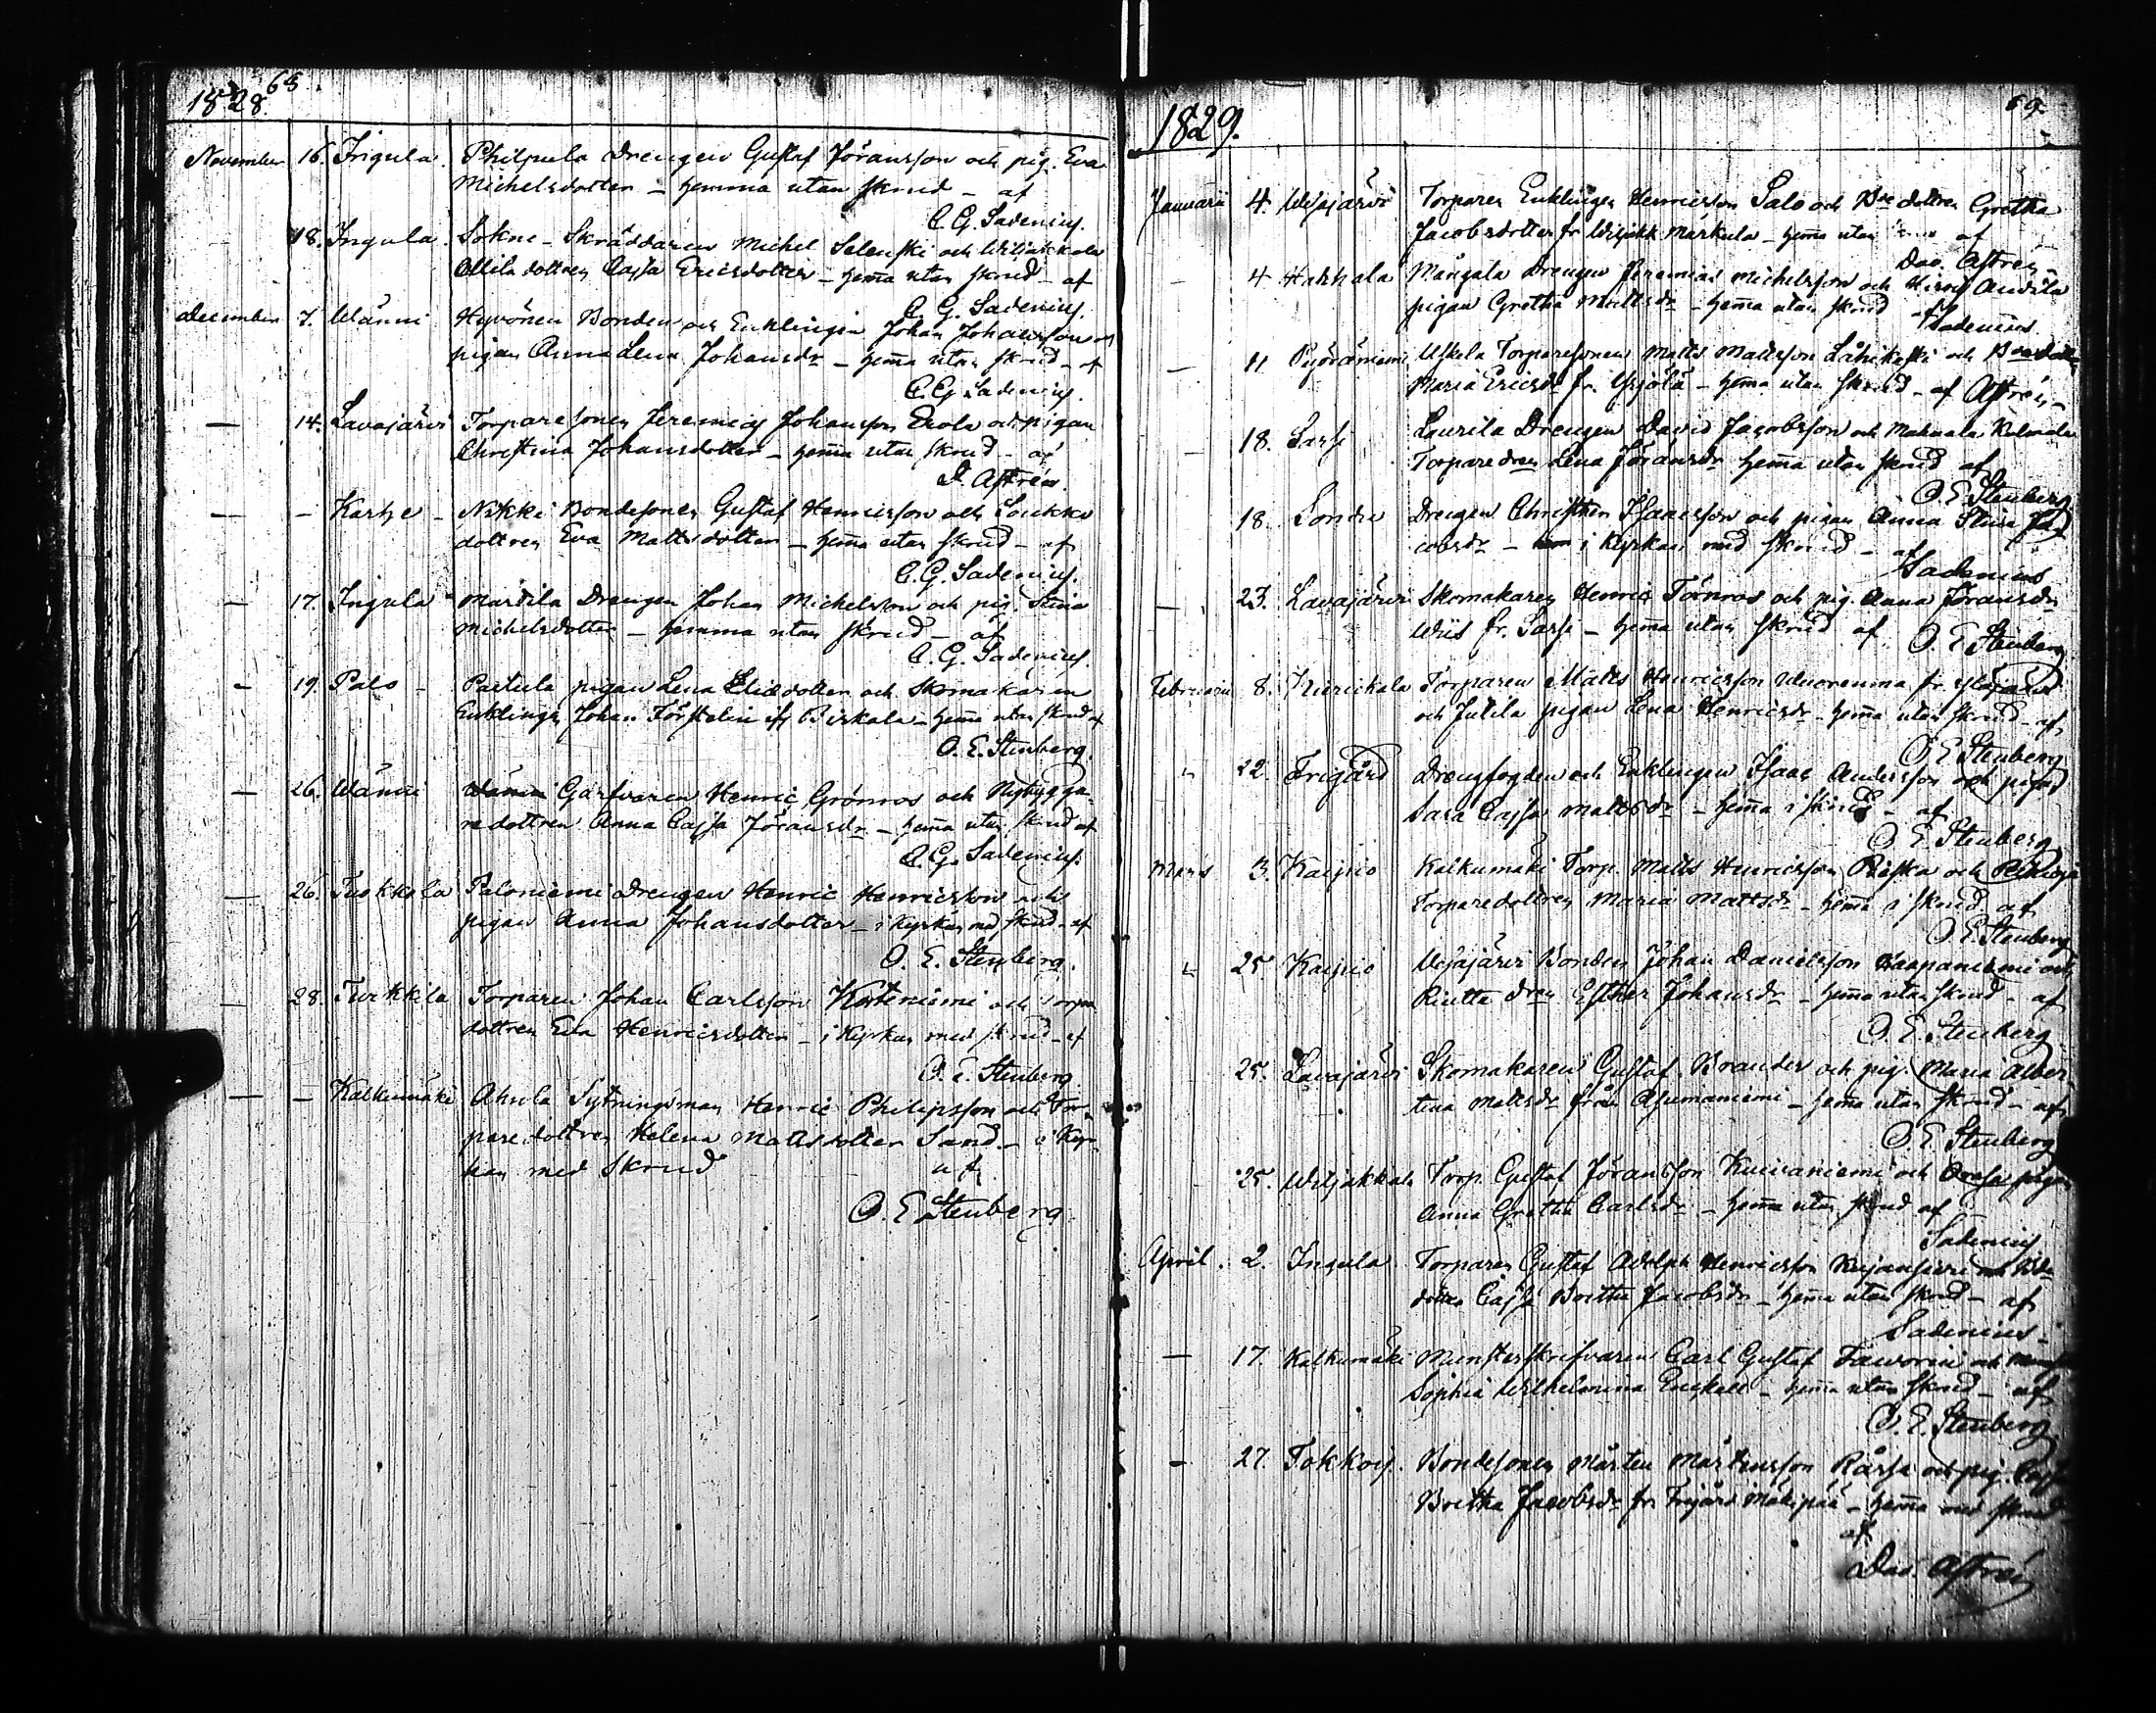 68.
1828.
November 16. Ingula. Philpula Drengen Gustaf Jöransson och pig. Eva
Michelsdotter – hemma utan skrud – af
C. G. Sadenius.
– 18. Ingula. Sokne-Skräddaren Michel Selenski och Wiljakkala
Ollila dottren Cajsa Ericsdotter – hema utan skrud – af
C. G. Sadenius.
December 7. Wänni Hyvönen Bonden och Enklingen Johan Johansson och
pigan Anna Lena Johansdr – hema utan skrud – af
C. G. Sadenius.
– 14. Lavajärvi Torparesonen Jeremias Johansson Erola och pigan
Christina Johansdotter – hema utan skrud – af
D. Astrén.
– – Kartje – Nikki Bondesonen Gustaf Henricsson och Loukko
dottren Eva Mattsdotter – hema utan skrud – af
C. G. Sadenius.
– 17. Ingula Mattila Drengen Johan Michelsson och pig. Stina
Michelsdotter – hemma utan skrud – af
C. G. Sadenius.
– 19. Palo – Partula pigan Lena Eliædotter och Skomakaren
Enklingen Johan Förstelin ifr Birkala – hema utan skrud af
O. E. Stenberg.
– 26. Wänni Garfvaren Henric Grönros och Nybygga-
redottren Anna Cajsa Jöransdr – hema utan skrud af
C. G. Sadenius.
– 26. Tuokkola Paloniemi Drengen Henric Henricsson och
pigan Anna Johansdotter – i Kyrkan med skrud – af
O. E. Stenberg.
– 28. Turkkila Torparen Johan Carlsson Korteniemi och Torpa
dottren Eva Henricsdotter – i Kyrkan med skrud – af
O. E. Stenberg.
– – Kalkumäki Ahrola Sytningsman Henric Philipsson och Tor-
paredottren Helena Mattsdotter Sand – i Kyr-
kan med Skrud af
O. E. Stenberg.
69.
1829.
Januarii 4. Wäjärvi Torparen Enklingen Henricsson Salo och Bde dottren Gretha
Jacobsdotter fr Wiljakk Markula – hema utan af
Dav. Astrén
– 4 Hakkala Mångala Drengen Jeremias Michelsson och Anttila
pigan Gretha Mattsdr – hema utan skrud – af
Sadenius
– 11 Pyöräniemi Uskela Torparesonen Matts Mattsson Lähikoski och Bonde
Maria Ericsdr fr. Yrjölä – hema utan skrud – af Astrén –
– 18. Sasse Laurila Drengen David Jacobsson och
Torparedren Lena Jöransdr hema utan skrud af
O E Stenberg
18. Londu Drengen Christer Isaacsson och pigan Anna Stina Ja-
cobsdr – i Kyrkan med skrud – af
Sadenius
– 23. Lavajärvi Skomakaren Henric Törnros och pig. Anna Jöransdr
Wiis fr. Sasse – hema utan skrud af O. E Stenberg
Februarii 8. Kierikala Torparen Matts Henricsson Wuorenma fr
och Jutila pigan Lena Henricsdr – hema utan skrud – af
O E Stenberg
" 22. Frigård Drengfogden och Enklingen Isaac Andersson och pigan
Sara Cajsa Mattsdr – hema i skrud – af
O E Stenberg
Mars 3. Kaipio Kalkumäki Torp. Matts Henricsson och
Torparedottren Maria Mattsdr – hema i skrud af
O E. Stenberg
" 25 Kaipio Wejäjärvi Bonden Johan Danielsson Haapaniemi och
Riutta dren Esther Johansdr – hema utan skrud – af
O. E. Stenberg
25. Lavajärvi Skomakaren Gustaf Brander och pig. Maria Alber-
tina Mattsdr från Asumaniemi – hema utan skrud – af
O E Stenberg
25. Wiljakkala Torp. Gustaf Jöransson Kuivaniemi och pigan
Anna Gretha Carlsdr – hema utan skrud af
Sadenius
April. 2. Ingula Torparen Gustaf Adolph Henricsson
dotter Cajsa Britha Jacobsdr – hema utan skrud – af
Sadenius –
– 17. Kalkumäki Munsterskrifvaren Carl Gustaf Faworin och
Sophia Wilhelmina Enckell – hema utan skrud – af
O. E. Stenberg
– 27. Tokkois. Bondesonen Mårten Mårtensson och pig. Cajsa
Britha Jacobsdr fr Frigård Mäkipää – hema med skrud
af
Dav. Astrén